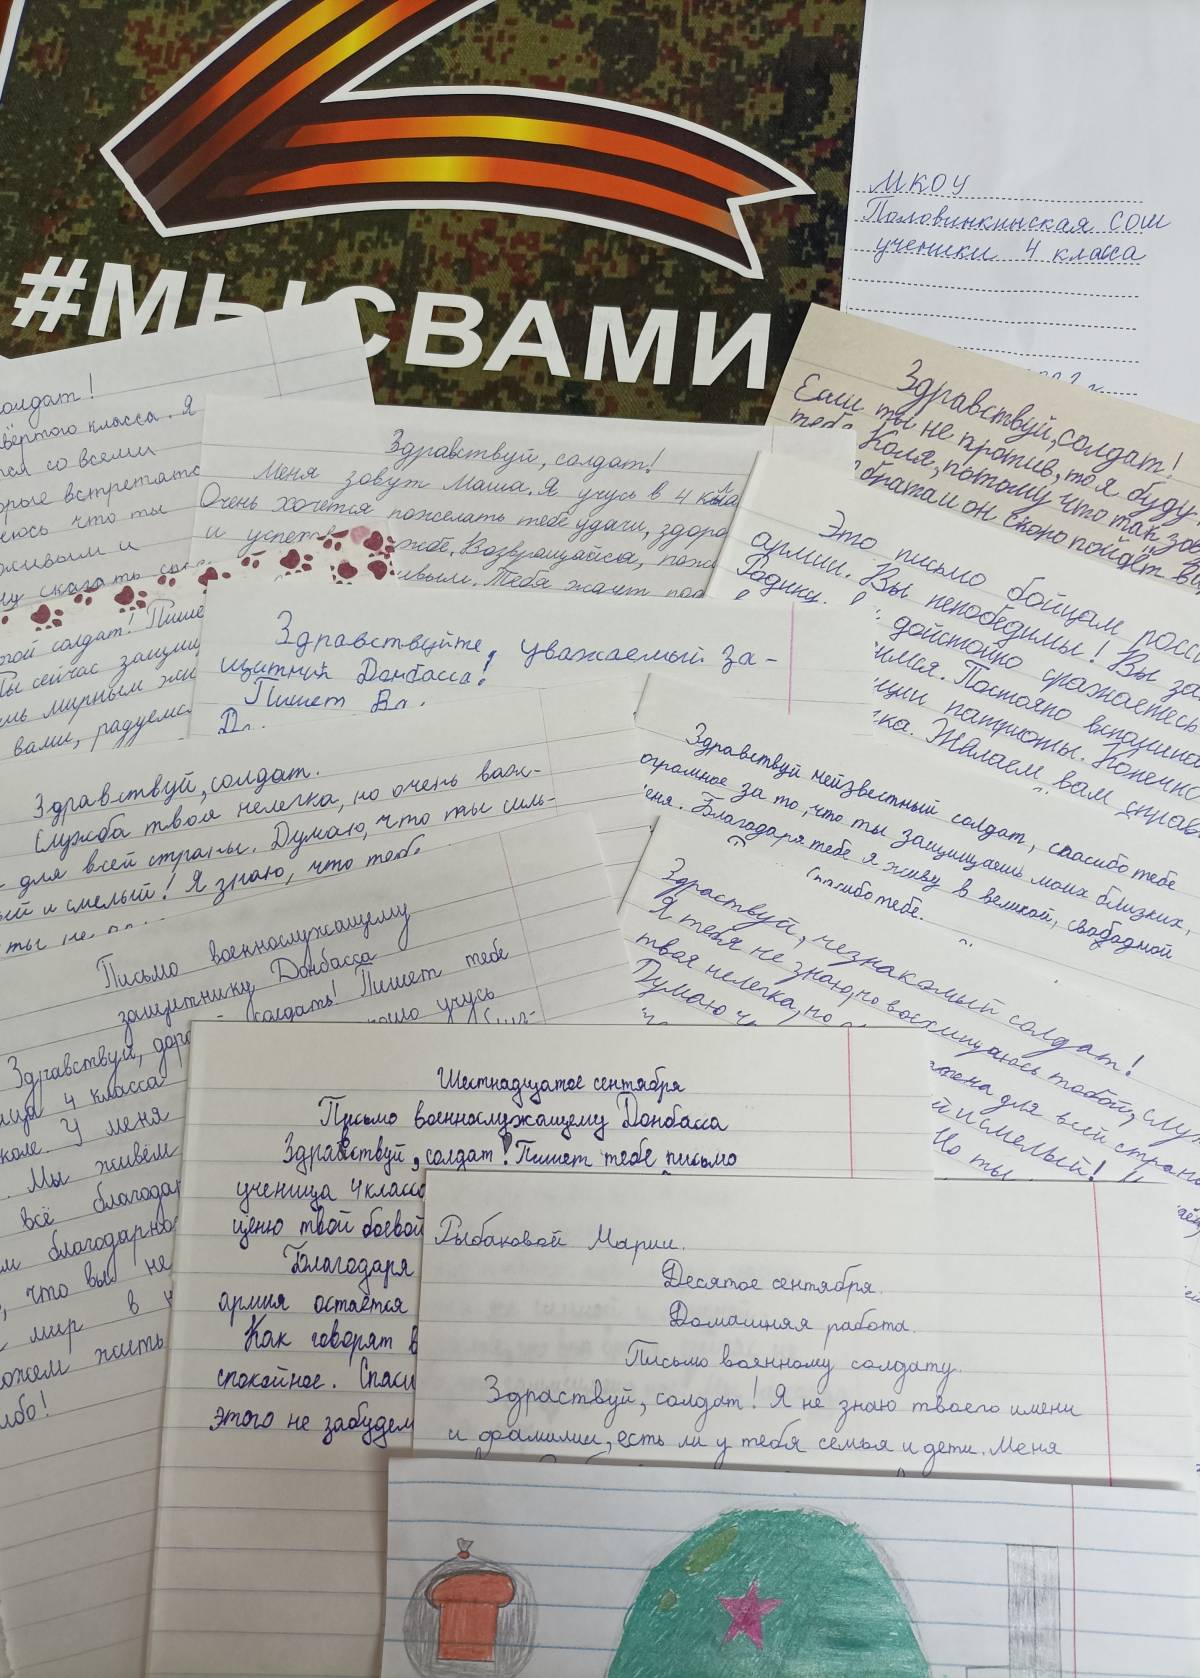 #МЫСВАМИ
МКОУ
Половинкинская СОШ
ученики 4 класса
солдат!
твёртого класса. Я
со всеми
встретятся
что ты
живыми и
сказать
Здравствуй, солдат!
Меня зовут Маша. Я учусь в 4 кла
Очень хочется пожелать тебе удачи, здоро
и успех жбе. Возвращайся, пож
ивым. Тебя ждут
Здравствуй, солдат!
Если ты не против, то я буду
тебя Коля, потому что так зов
брата и он скоро пойдёт в
Это письмо бойцам росс
армии. Вы непобедимы! Вы за
Родину.
дойстойно сражаетесь
имся. Постояно вспомина
патриоты. Конечно
Желаем вам справ
солдат! Пише
Ты сейчас защищ
мирным
вами, радуемс
Здравствуйте, уважаемый за-
щитник Донбасса!
Пишет Вл
Здравствуй, солдат.
Служба твоя нелегка, но очень важ-
для всей страны. Думаю, что ты силь-
ый и смелый! Я знаю, что тебе
ты не
Здравствуй неизвестный солдат, спасибо тебе
огромное за то, что ты защищаешь моих близких,
меня. Благодаря тебе я живу в великой, свабадной
Спасибо тебе.
Здраствуй, незнакомый солдат!
Я тебя не знаю, но восхищаюсь тобой, служ
твая нелегка, но
для всей страны
Думаю
й и смелый!
Но ты
Письмо военнослужащему
защитнику Донбасса
Здравствуй, доро солдать! Пишет тебе
ица 4 класса учусь
коле. У меня
Мы живём
всё благодар
м благодарнос
что вы не
мир в
ожем жить
ибо!
Шестнадцатое сентября
Письмо военнослужащему Донбасса
Здравствуй, солдат! Пишет тебе письмо
ученица 4 класса
ценю твой боевой
Благодаря
армия остаётся
Как говорят в
спокойное. Спаси
этого не забудем
Рыбаковой Марии.
Десятое сентября.
Домашняя работа.
Письмо военному солдату.
Здраствуй, солдат! Я не знаю твоего имени
и фамилии, есть ли у тебя семья и дети. Меня